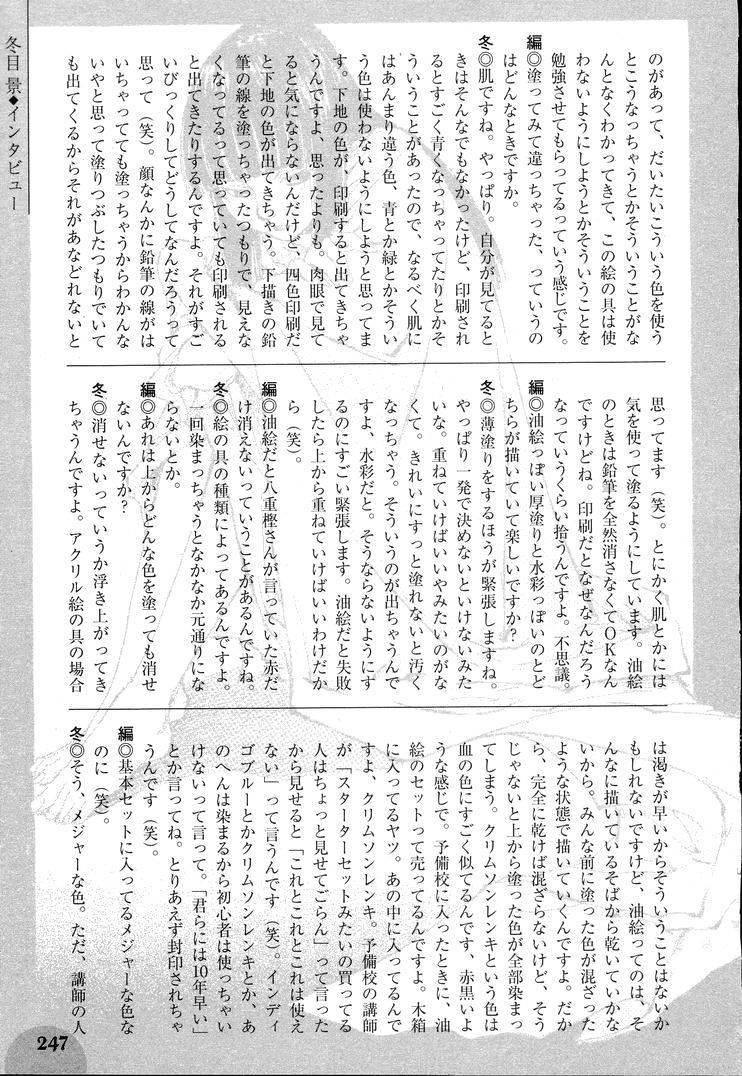 冬目 景◆インタビュー
のがあって、だいたいこういう色を使う
とこうなっちゃうとかそういうことがな
んとなくわかってきて、この絵の具は使
わないようにしようとかそういうことを
勉強させてもらってるっていう感じです。
編◎塗ってみて違っちゃった、っていうの
はどんなときですか。
冬◎肌ですね。やっぱり。自分が見てると
きはそんなでもなかったけど、印刷され
るとすごく青くなっちゃってたりとかそ
ういうことがあったので、なるべく肌に
はあんまり違う色、青とか緑とかそうい
う色は使わないようにしようと思ってま
す。下地の色が、印刷すると出てきちゃ
うんですよ、思ったよりも。肉眼で見て
ると気にならないんだけど、四色印刷だ
と下地の色が出てきちゃう。下描きの鉛
筆の線を塗っちゃったつもりで、見えな
くなってるって思っていても印刷される
と出てきたりするんですよ。それがすご
いびっくりしてどうしてなんだろうって
思って（笑）。顔なんかに鉛筆の線がは
いちゃってても塗っちゃうからわかんな
いやと思って塗りつぶしたつもりでいて
も出てくるからそれがあなどれないと
思ってます（笑）。とにかく肌とかには
気を使って塗るようにしています。油絵
のときは鉛筆を全然消さなくてＯＫなん
ですけどね。印刷だとなぜなんだろう
なっていうくらい拾うんですよ。不思議。
編◎油絵っぽい厚塗りと水彩っぽいのとど
ちらが描いていて楽しいですか？
冬◎薄塗りをするほうが緊張しますね。
やっぱり一発で決めないといけないみた
いな。重ねていけばいいやみたいのがな
くて。きれいにすっと塗れないと汚く
なっちゃう。そういうのが出ちゃうんで
すよ、水彩だと。そうならないようにす
るのにすごい緊張します。油絵だと失敗
したら上から重ねていけばいいわけだか
ら（笑）。
編◎油絵だと八重樫さんが言っていた赤だ
け消えないっていうことがあるんですね。
冬◎絵の具の種類によってあるんですよ。
一回染まっちゃうとなかなか元通りにな
らないとか。
編◎あれは上からどんな色を塗っても消せ
ないんですか？
冬◎消せないっていうか浮き上がってき
ちゃうんですよ。アクリル絵の具の場合
は渇きが早いからそういうことはないか
もしれないですけど、油絵ってのは、そ
んなに描いているそばから乾いていかな
いから。みんな前に塗った色が混ざった
ような状態で描いていくんですよ。だか
ら、完全に乾けば混ざらないけど、そう
じゃないと上から塗った色が全部染まっ
てしまう。クリムソンレンキという色は
血の色にすごく似てるんです、赤黒いよ
うな感じで。予備校に入ったときに、油
絵のセットって売ってるんですよ。木箱
に入ってるヤツ。あの中に入ってるんで
すよ、クリムソンレンキ。予備校の講師
が「スターターセットみたいの買ってる
人はちょっと見せてごらん」って言った
から見せると「これとこれとこれは使え
ない」って言うんです（笑）。インディ
ゴブルーとかクリムソンレンキとか、あ
のへんは染まるから初心者は使っちゃい
けないって言って。「君らには10年早い」
とか言ってね。とりあえず封印されちゃ
うんです（笑）。
編◎基本セットに入ってるメジャーな色な
のに（笑）。
冬◎そう、メジャーな色。ただ、講師の人
247